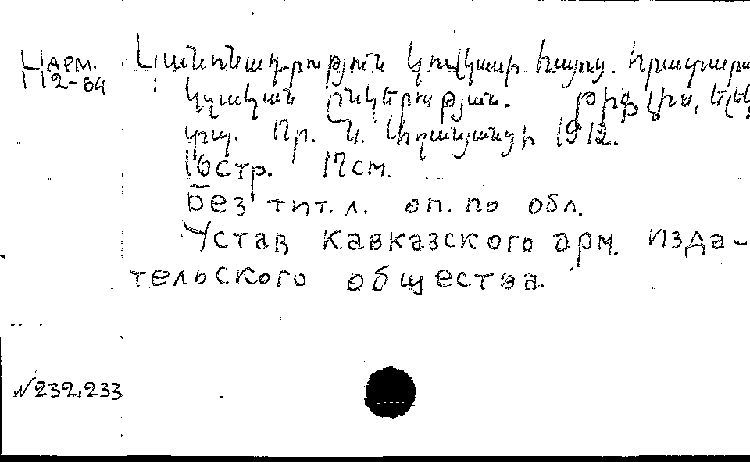 Нарм.
2-64
Կանոնադրություն Կովկասի հայոց. հրատարա
կչական ընկերության. Թիֆլիս, Ելեկ
տպ. Օր. Ն. Աղանյանցի 1912.
16 стр. 17 см.
Без тит. л. оп. по обл.
Устав Кавказского арм. изда-
тельского общества.
№ 232,233